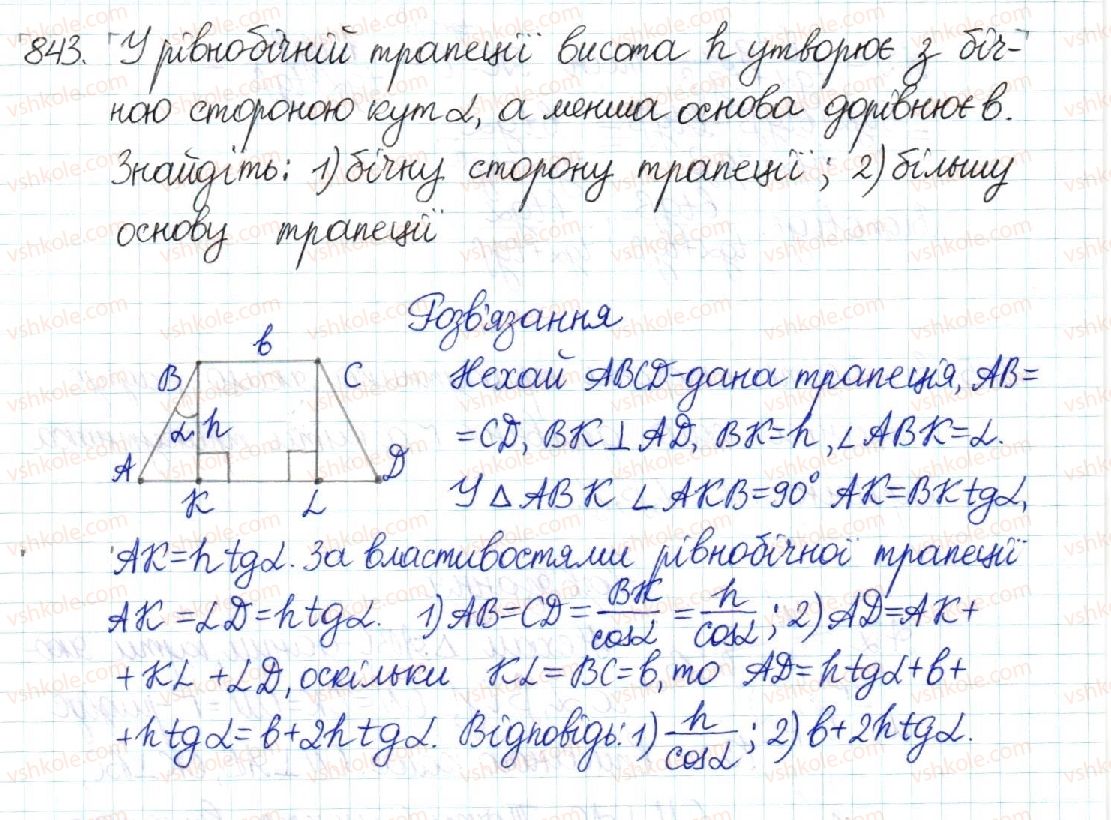 843. У рівнобічній трапеції висота h утворює з біч-
ною стороною кут α, а менша основа дорівнює b.
Знайдіть: 1) бічну сторону трапеції; 2) більшу
основу трапеції
Розв'язання
b
B C
α h
A D
K L
Нехай ABCD-дана трапеція, AB=
=CD, BK⊥AD, BK=h, ∠ABK=α.
У △ABK ∠AKB=90° AK=BKtgα,
AK=htgα. За властивостями рівнобічної трапеції
AK=LD=htgα. 1) AB=CD=BK/cosα=h/cosα; 2) AD=AK+
+KL+LD, оскільки KL=BC=b, то AD=htgα+b+
+htgα=b+2htgα. Відповідь: 1) h/cosα; 2) b+2htgα.